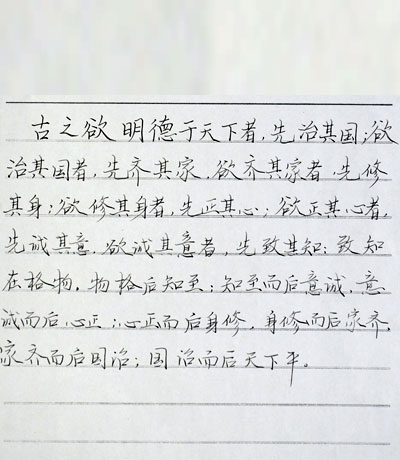 古之欲明德于天下者,先治其国;欲
治其国者,先齐其家,欲齐其家者,先修
其身;欲修其身者,先正其心;欲正其心者,
先诚其意,欲诚其意者,先致其知;致知
在格物,物格后知至;知至而后意诚,意
诚而后心正;心正而后身修,身修而后家齐,
家齐而后国治;国治而后天下平。